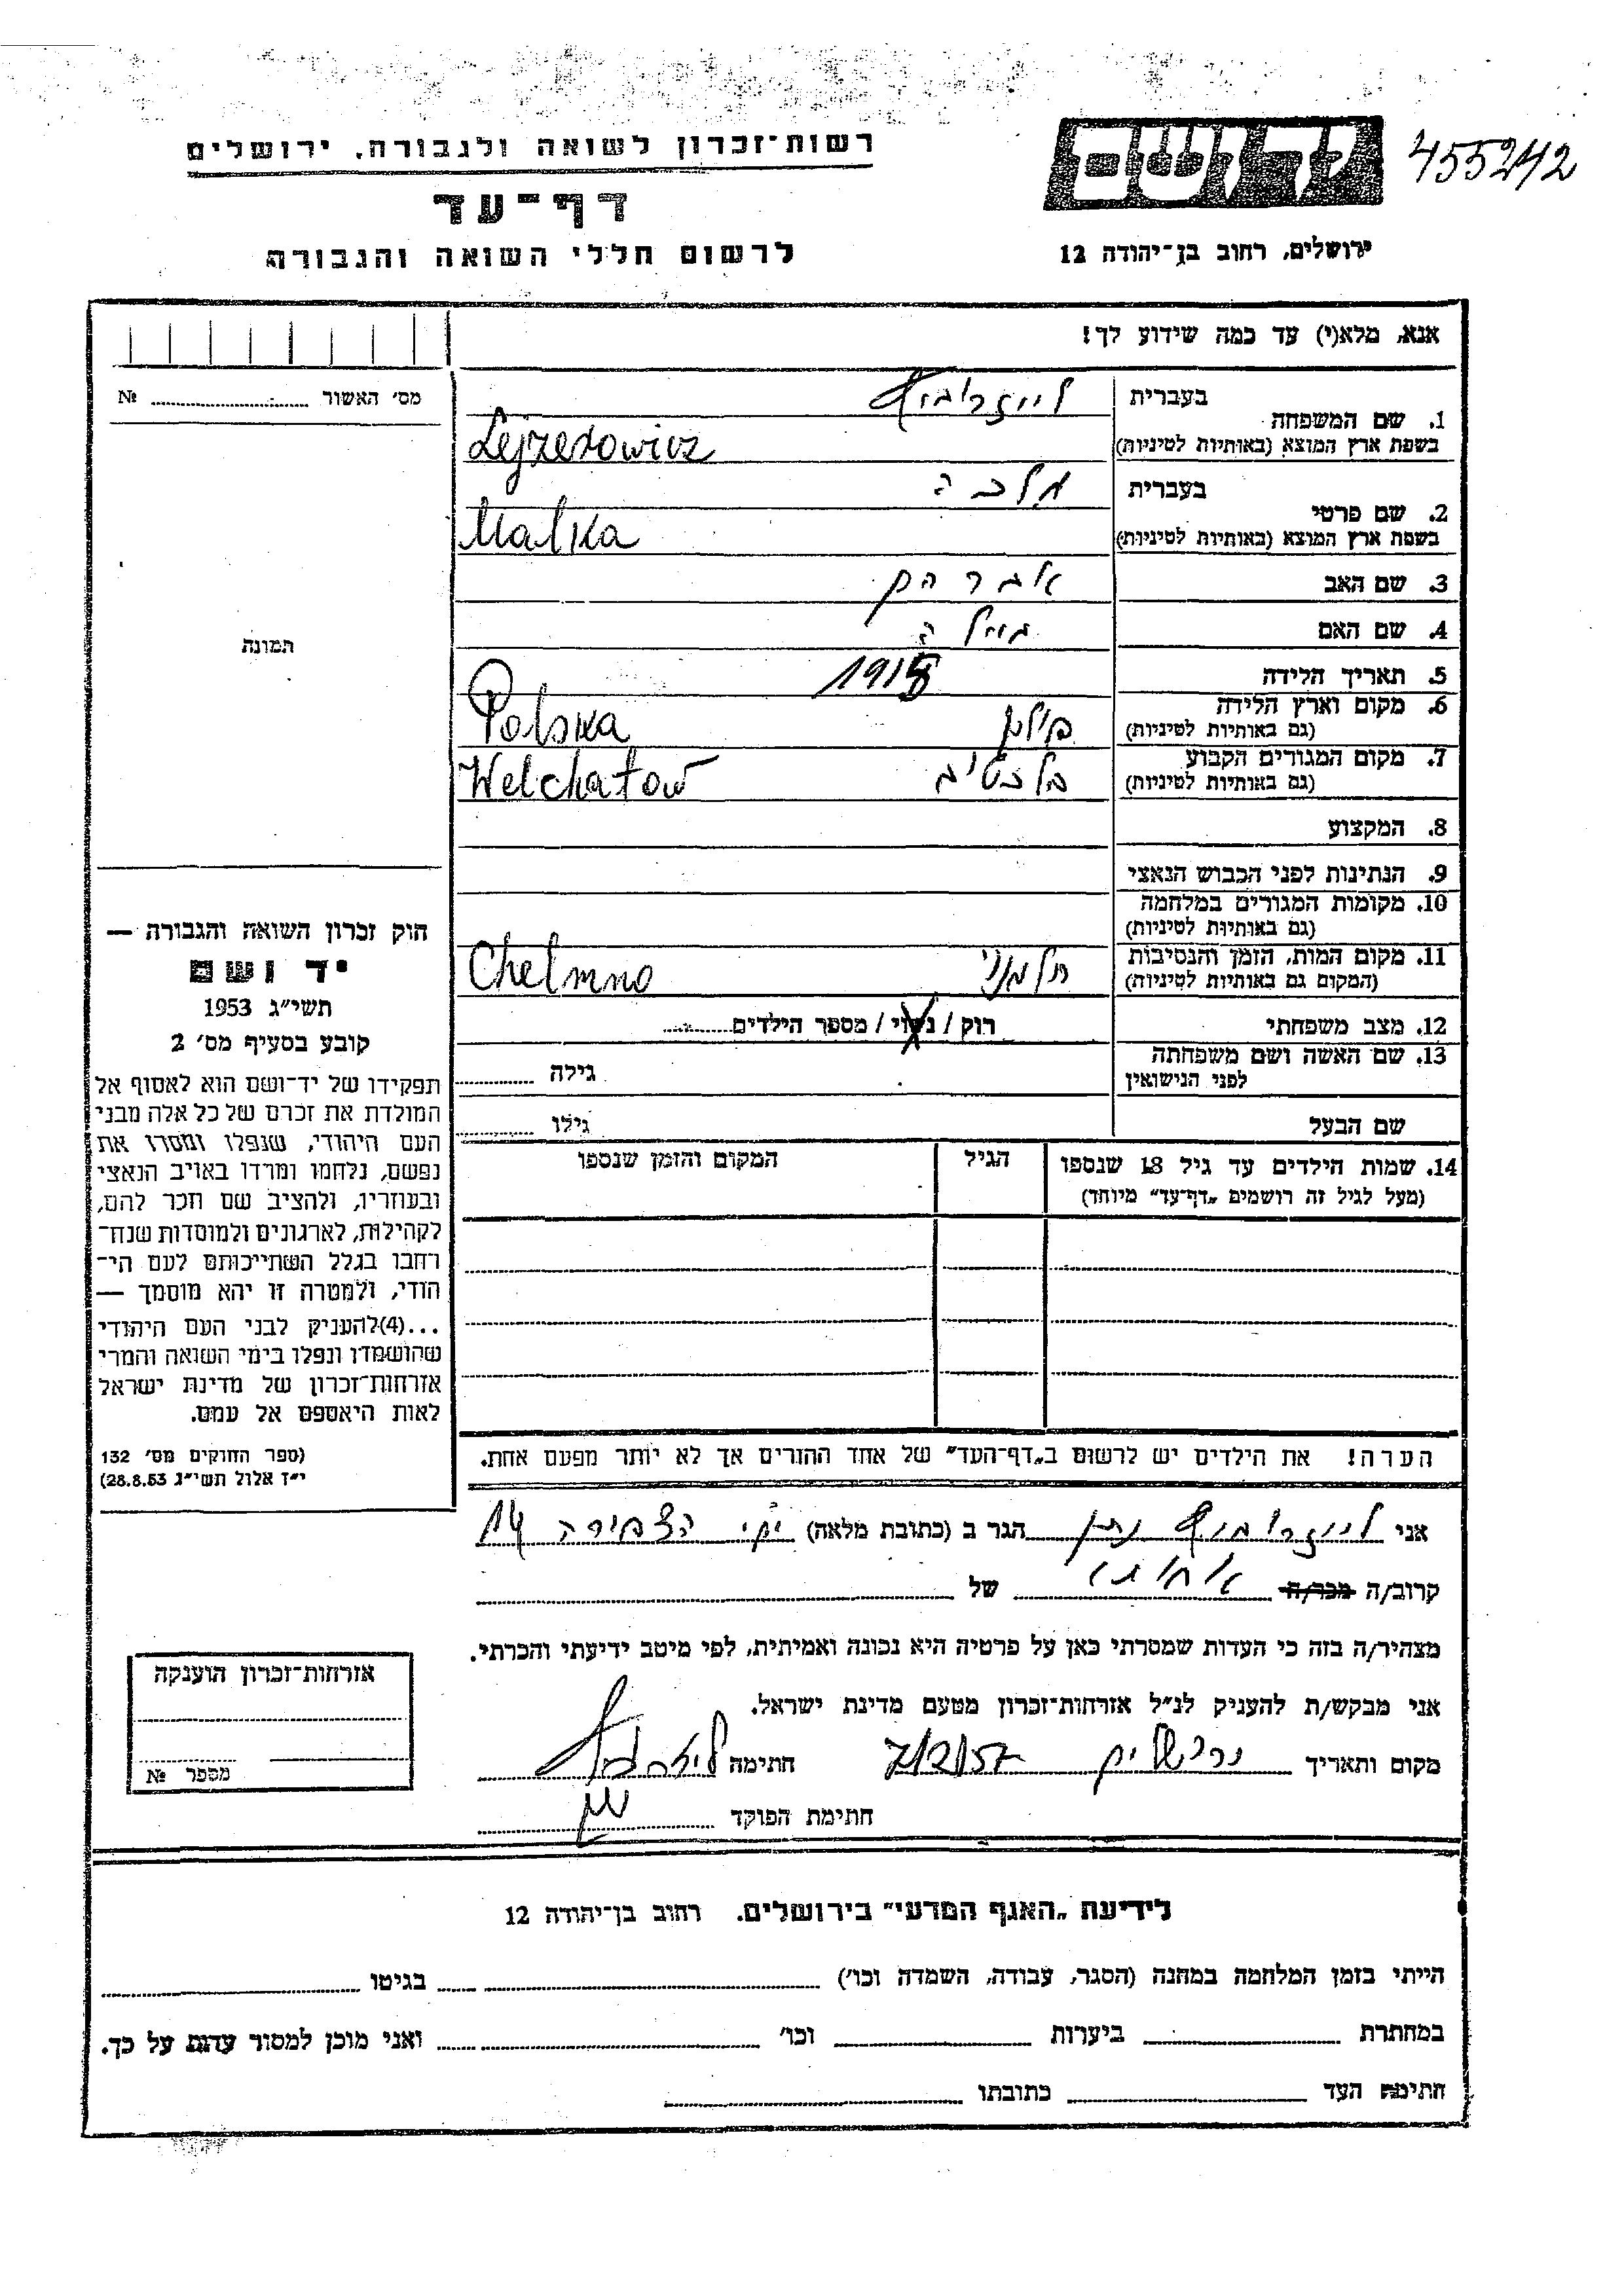 רשות־זכרון לשואה ולגבורה, ירושלים
דף־עד
לרשום חללי השואה והגבורה
יד ושם
455242
ירושלים, רחוב בן־יהודה 12
אנא, מלא(י) עד כמה שידוע לך!
מס׳ האשור № ....................
תמונה
1. שם המשפחה
בעברית לייזרוביץ
בשפת ארץ המוצא (באותיות לטיניות) Lejzerowicz
2. שם פרטי
בעברית מלכה
בשפת ארץ המוצא (באותיות לטיניות) Malka
3. שם האב אברהם
4. שם האם
5. תאריך הלידה 1918
6. מקום וארץ הלידה פולין Polska
(גם באותיות לטיניות)
7. מקום המגורים הקבוע Welchatow
(גם באותיות לטיניות)
8. המקצוע
9. הנתינות לפני הכבוש הנאצי
10. מקומות המגורים במלחמה
(גם באותיות לטיניות)
11. מקום המות, הזמן והנסיבות חלמנו Chelmno
(המקום גם באותיות לטיניות)
12. מצב משפחתי רוק / נשוי / מספר הילדים............
13. שם האשה ושם משפחתה
לפני הנישואין גילה ............
שם הבעל גילו ............
14. שמות הילדים עד גיל 18 שנספו הגיל המקום והזמן שנספו
(מעל לגיל זה רושמים „דף־עד” מיוחד)
הערה! את הילדים יש לרשום ב„דף־העד” של אחד ההורים אך לא יותר מפעם אחת.
חוק זכרון השואה והגבורה —
יד ושם
תשי״ג 1953
קובע בסעיף מס׳ 2
תפקידו של יד־ושם הוא לאסוף אל
המולדת את זכרם של כל אלה מבני
העם היהודי, שנפלו ומסרו את
נפשם, נלחמו ומרדו באויב הנאצי
ובעוזריו, ולהציב שם וזכר להם,
לקהילות, לארגונים ולמוסדות שנח־
רחבו בגלל השתייכותם לעם הי־
הודי, ולמטרה זו יהא מוסמך —
...(4)להעניק לבני העם היהודי
שהושמדו ונפלו בימי השואה והמרי
אזרחות־זכרון של מדינת ישראל
לאות היאספם אל עמם.
(ספר החוקים מס׳ 132
י״ז אלול תשי״ג 28.8.53)
אני לייזרוביץ נתן הגר ב (כתובת מלאה) הצפירה 14
קרוב/ה מכר/ה אחותי של
מצהיר/ה בזה כי העדות שמסרתי כאן על פרטיה היא נכונה ואמיתית, לפי מיטב ידיעתי והכרתי.
אני מבקש/ת להעניק לנ״ל אזרחות־זכרון מטעם מדינת ישראל.
מקום ותאריך ירושלים 7/2/57 חתימה
חתימת הפוקד
אזרחות־זכרון הוענקה
מספר №
לידיעת „האגף המדעי” בירושלים, רחוב בן־יהודה 12
הייתי בזמן המלחמה במחנה (הסגר, עבודה, השמדה וכו׳) .................... בגיטו ....................
במחתרת .................... ביערות .................... וכו׳ .................... ואני מוכן למסור עדות על כך.
חתימת העד .................... כתובתו ....................